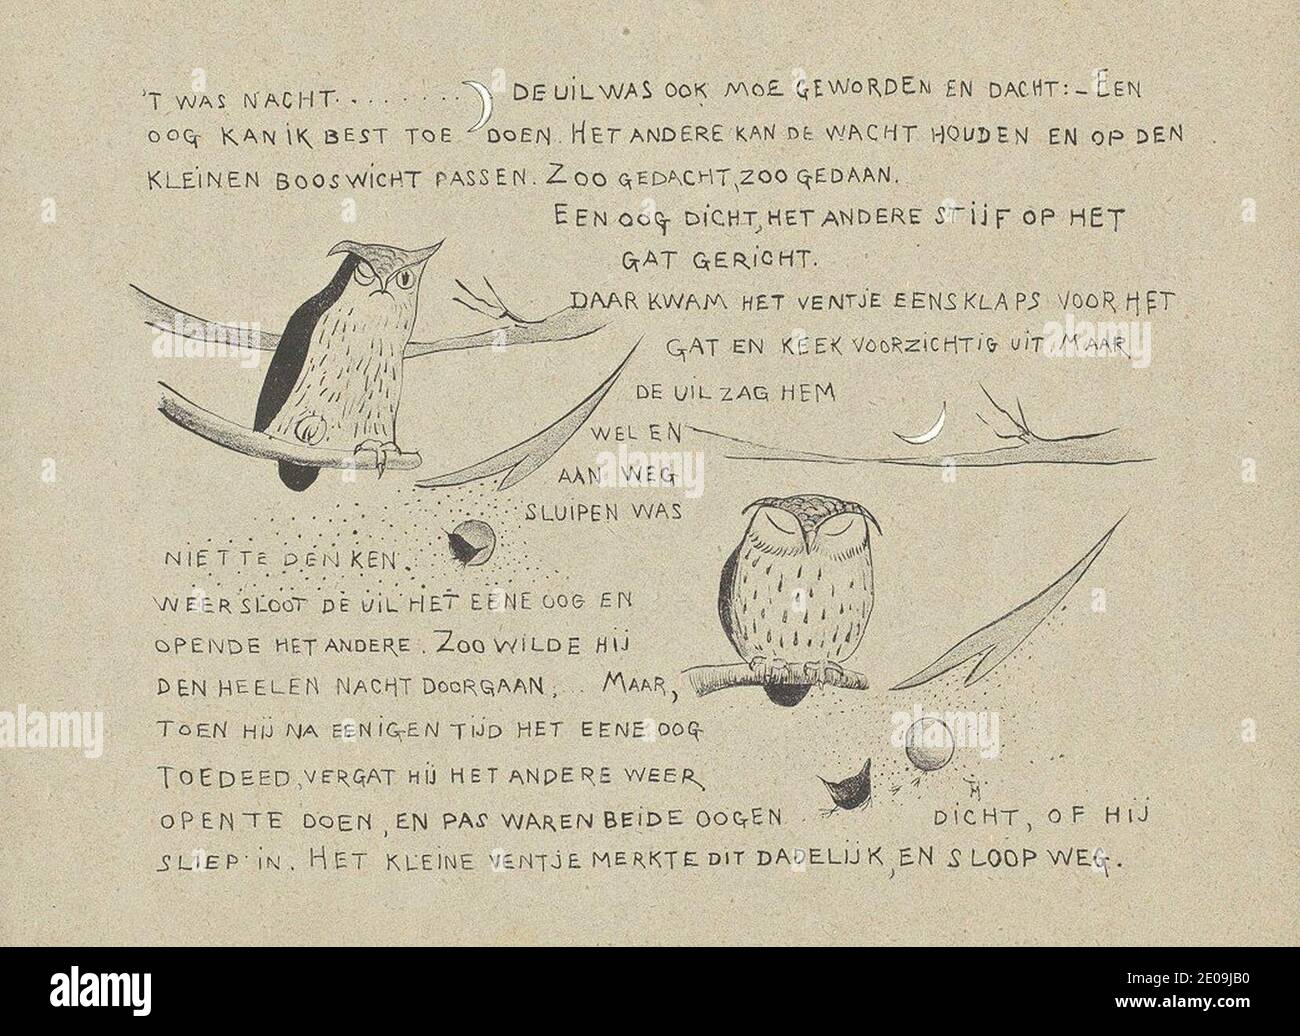 'T WAS NACHT......... DE UIL WAS OOK MOE GEWORDEN EN DACHT:- EEN
OOG KAN IK BEST TOE DOEN. HET ANDERE KAN DE WACHT HOUDEN EN OP DEN
KLEINEN BOOSWICHT PASSEN. ZOO GEDACHT, ZOO GEDAAN.
EEN OOG DICHT, HET ANDERE STIJF OP HET
GAT GERICHT.
DAAR KWAM HET VENTJE EENSKLAPS VOOR HET
GAT EN KEEK VOORZICHTIG UIT, MAAR
DE UIL ZAG HEM
WEL EN
AAN WEG
SLUIPEN WAS
NIET TE DENKEN.
WEER SLOOT DE UIL HET EENE OOG EN
OPENDE HET ANDERE. ZOO WILDE HIJ
DEN HEELEN NACHT DOORGAAN,.. MAAR,
TOEN HIJ NA EENIGEN TIJD HET EENE OOG
TOEDEED, VERGAT HIJ HET ANDERE WEER
OPEN TE DOEN, EN PAS WAREN BEIDE OOGEN DICHT, OF HIJ
SLIEP IN. HET KLEINE VENTJE MERKTE DIT DADELIJK, EN SLOOP WEG.
TH
a alamy
alamy
Image ID: 2E09JB0
www.alamy.com